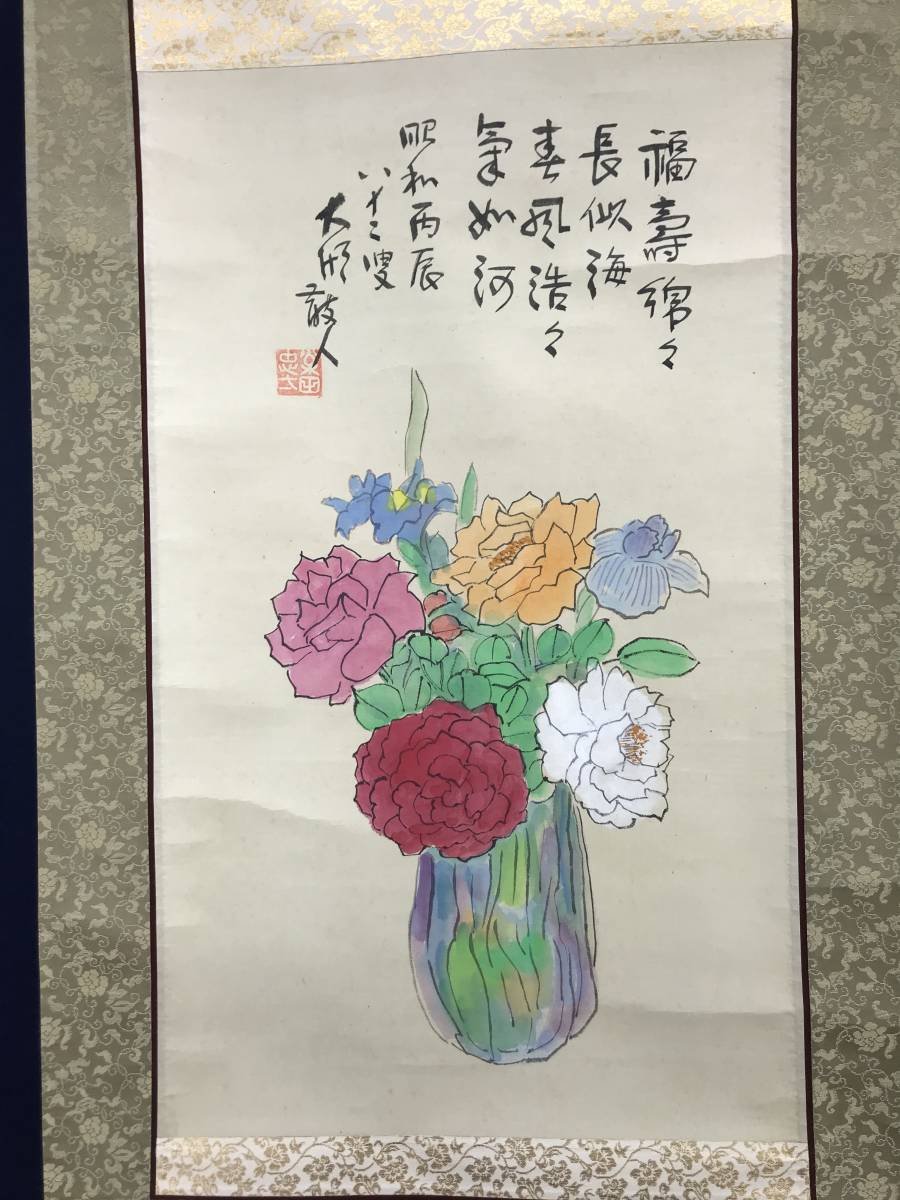 福壽綿々
長似海
春風浩々
氣如河
昭和丙辰
八十二叟
大㐂散人